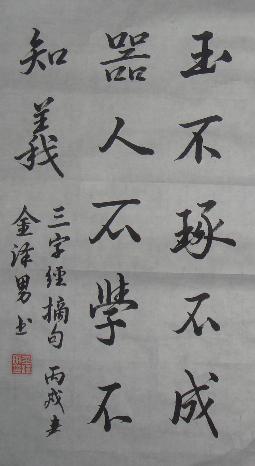 玉不琢不成
器人不學不
知義
三字經摘句 丙戌春
金泽男书